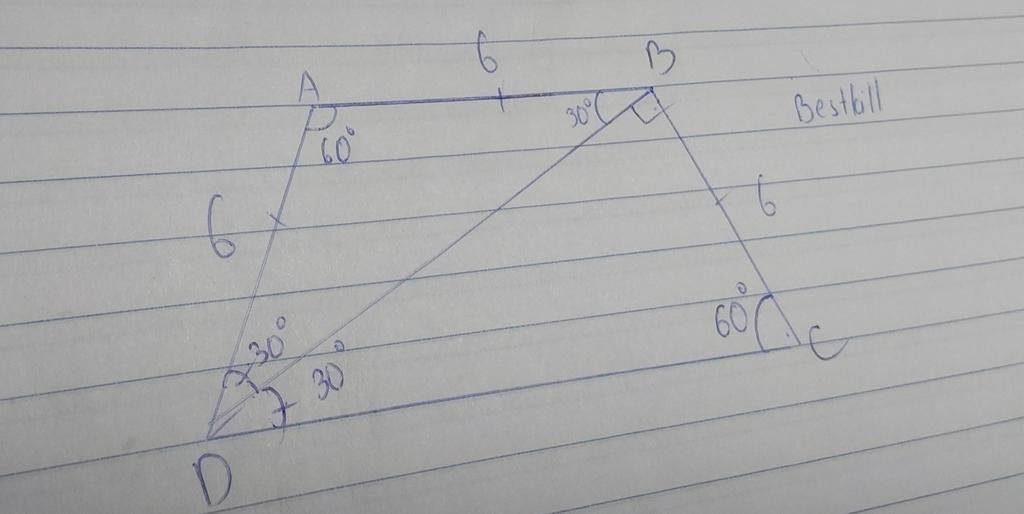 6
A
B
30°
Bestbill
60°
6
6
30°
30°
60°
C
D